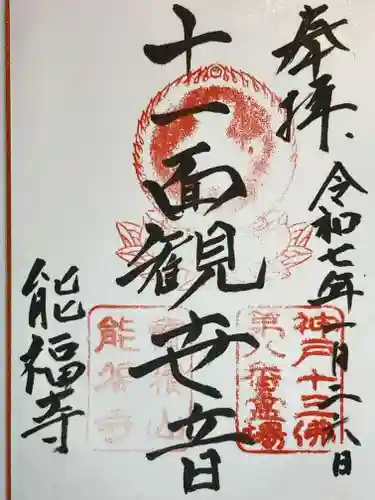 奉拝、
令和七年一月二六日
十一面観世音
能福寺
神戸十三佛
第八番霊場
能福寺